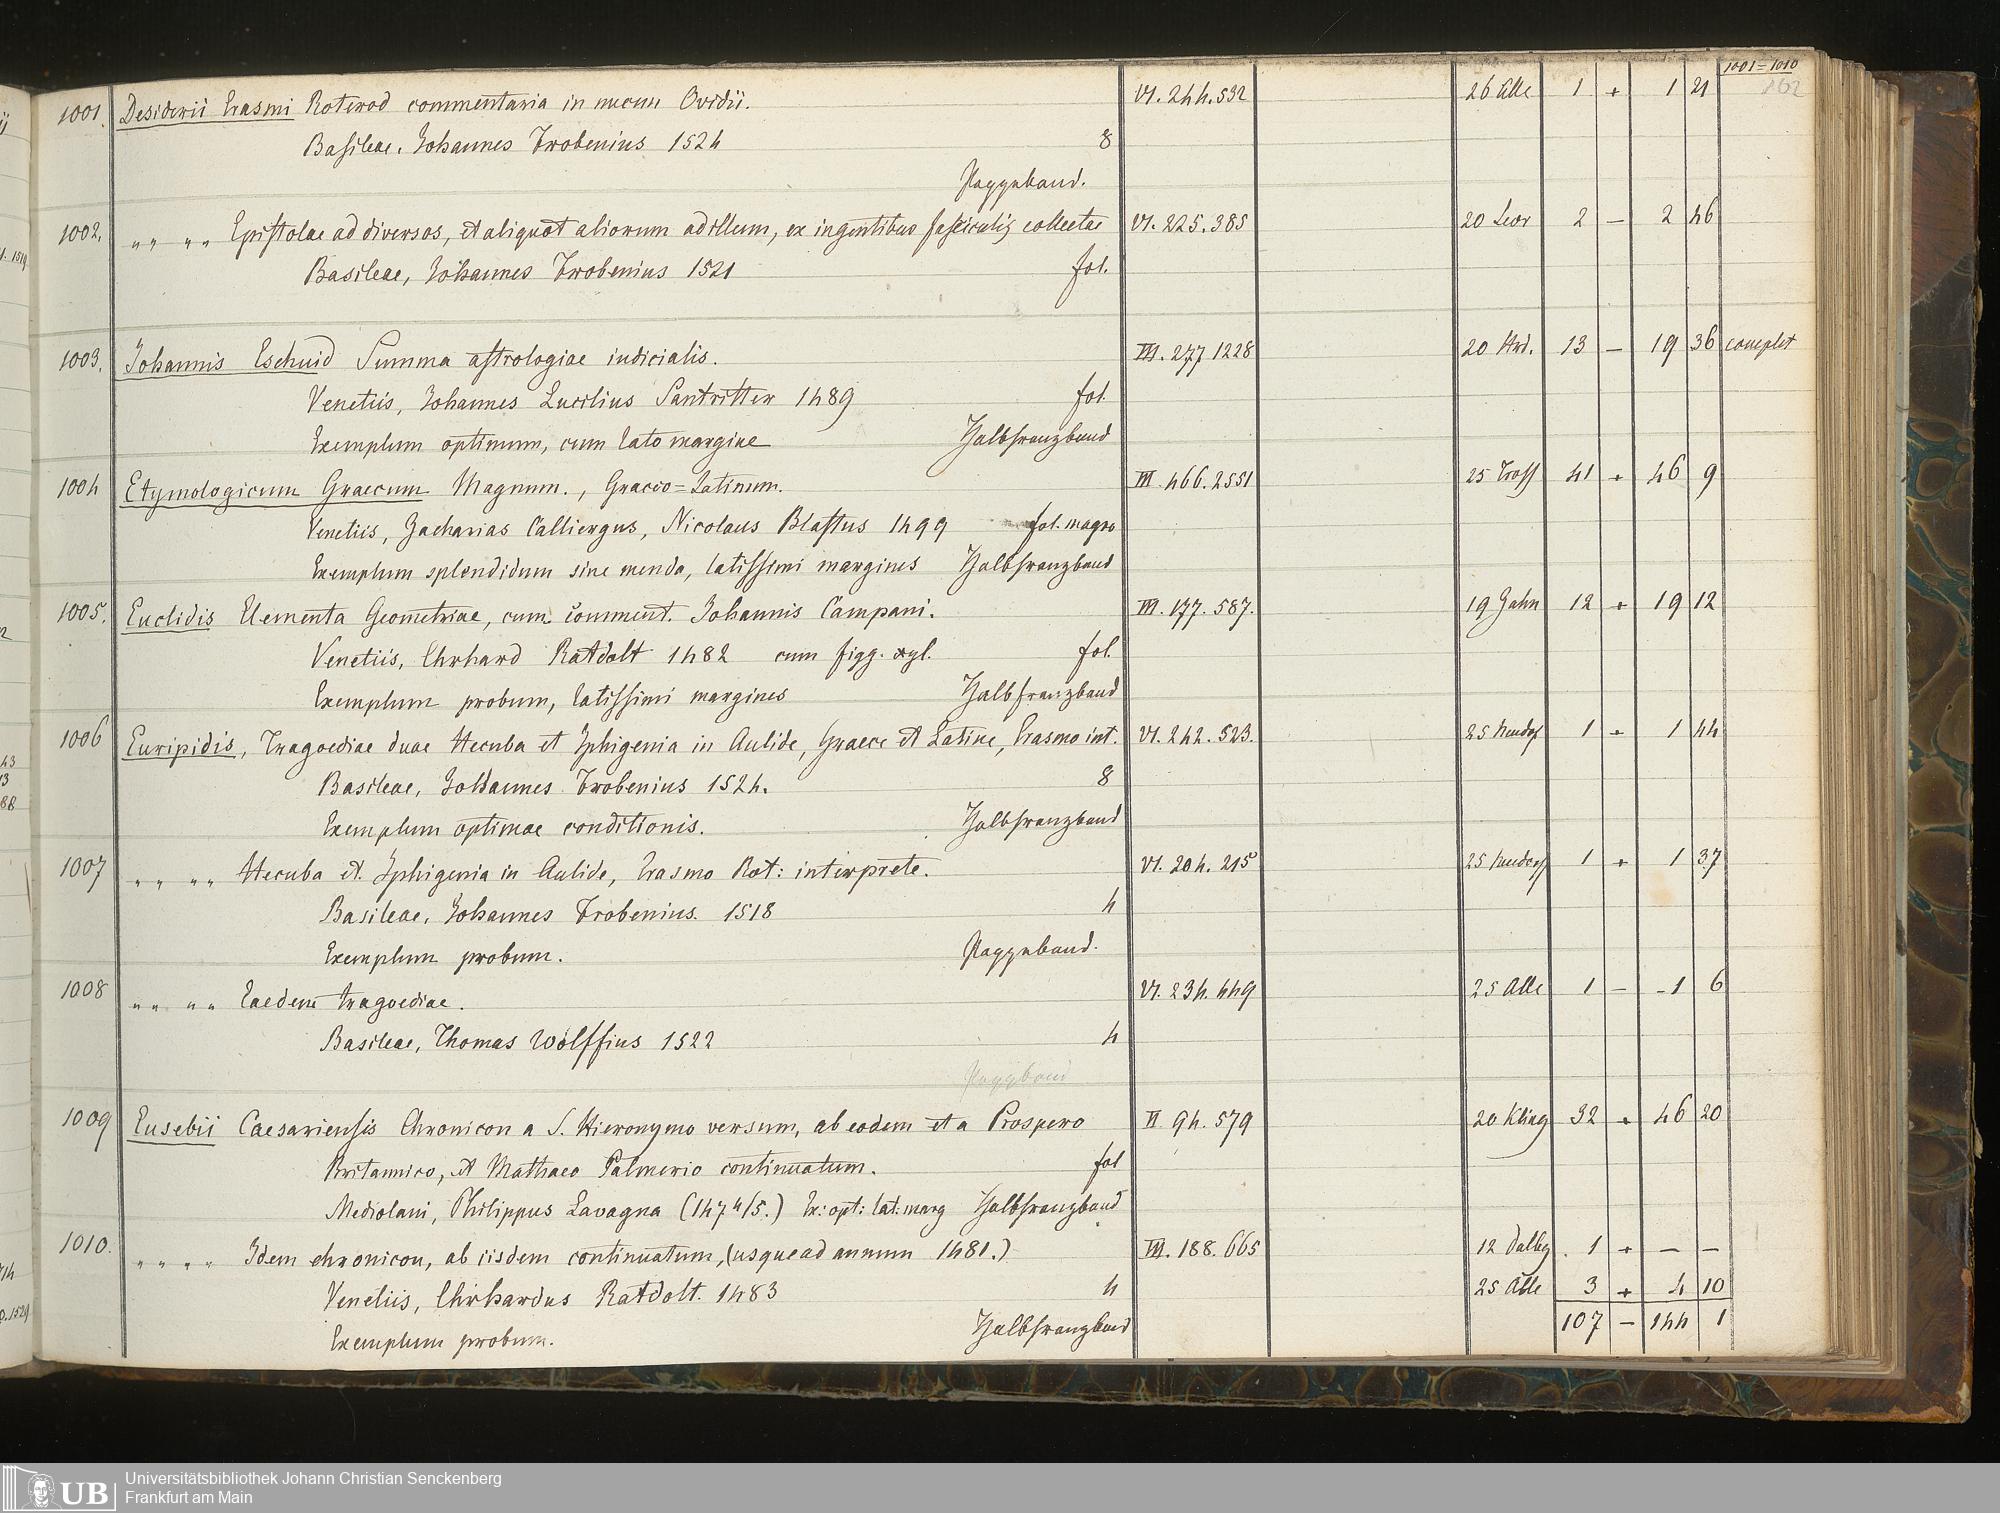 1001=1010
162
1001 Desiderii Erasmi Roterod commentaria in nucem Ovidii. VI. 244.532 26 Alle 1 + 1 21
Basileae. Johannes Frobenius 1524 8
Pappband.
1002. „ „ „ „ Epistolae ad diversos, et aliquot aliorum ad illum, ex ingentibus fasciculis collectae VI. 225.385 20 Leor 2 — 2 46
Basileae, Johannes Frobenius 1521 fol.
1003. Johannis Eschuid Summa astrologiae iudicialis. III. 277 1228 20 13 — 19 36 complet
Venetiis, Johannes Lucilius Santritter 1489 fol.
Exemplum optimum, cum lato margine Halbfranzband
1004 Etymologicum Graecum Magnum., Graeco=Latinum. III. 466.2551 25 Tross 41 + 46 9
Venetiis, Zacharias Calliergus, Nicolaus Blastus 1499 fol. magno
Exemplum splendidum sine menda, latissimi margines Halbfranzband
1005. Euclidis Elementa Geometriae, cum comment. Johannis Campani. III. 177. 587. 19 Jahn 12 + 19 12
Venetiis, Ehrhard Ratdolt 1482 cum figg. xyl. fol.
Exemplum probum, latissimi margines Halbfranzband
1006 Euripidis, Tragoediae duae Hecuba et Iphigenia in Aulide, Graece et Latine, Erasmo int. VI. 242. 523. 25 1 + 1 44
Basileae, Johannes Frobenius 1524. 8
Exemplum optimae conditionis. Halbfranzband
1007 „ „ „ „ Hecuba et Iphigenia in Aulide, Erasmo Rot: interprete. VI. 204. 215 25 1 + 1 37
Basileae, Johannes Frobenius. 1518 4
Exemplum probum. Pappband.
1008 „ „ „ „ Eaedem tragoediae. VI. 234. 449 25 Alle 1 — -1 6
Basileae, Thomas Wolffius 1522 4
Pappband
1009 Eusebii Caesariensis Chronicon a S. Hieronymo versum, ab eodem et a Prospero II. 94. 579 20 Kling 32 + 46 20
Britannico, et Mathaeo Palmerio continuatum. fol
Mediolani, Philippus Lavagna (1474/5.) Ex: opt: lat: marg Halbfranzband
1010. „ „ „ „ Idem chronicon, ab iisdem continuatum, (usque ad annum 1481.) III. 188. 665 12 Dalbg 1 + — —
Venetiis, Ehrhardus Ratdolt. 1483 4 25 Alle 3 + 4 10
Exemplum probum. Halbfranzband 107 — 144 1
Universitätsbibliothek Johann Christian Senckenberg
Frankfurt am Main
UB